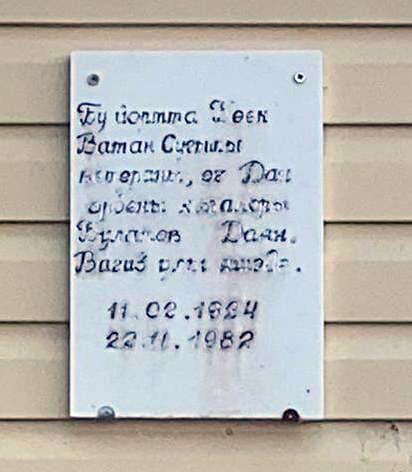 Бу йортта Бөек
Ватан Сугышы
ветераны, өч Дан
ордены кавалеры
Даян
Вагиз улы яшәде.
11.02.1924
22.11.1982